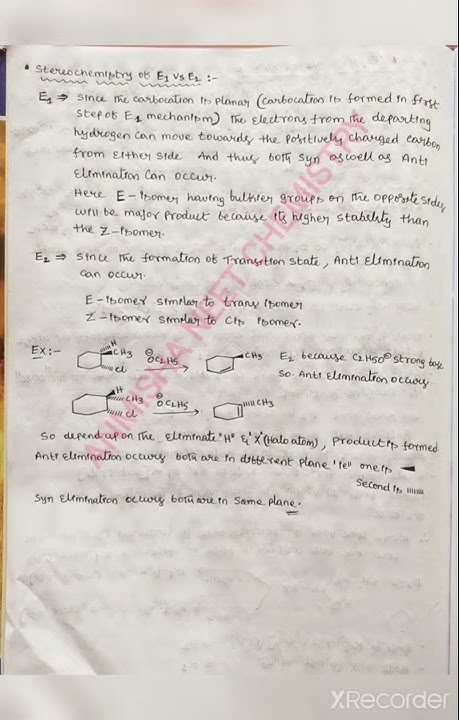 • Stereochemistry of E1 vs E2 :-
E1 ⇒ Since the carbocation is planar (carbocation is formed in first
step of E1 mechanism) The electrons from the departing
hydrogen can move towards the positively charged carbon
from either side And thus both syn as well as Anti
Elimination can occur.
Here E-isomer having bulkier groups on the opposite sides
will be major product because its higher stability than
the Z-isomer.
E2 ⇒ Since the formation of Transition state, Anti Elimination
can occur.
E-isomer similar to trans isomer
Z-isomer similar to Cis isomer.
Ex:- H CH3 Cl ⊖OC2H5 → CH3 E2 because C2H5O⊖ strong base
So Anti Elimination occurs
H CH3 Cl ⊖OC2H5 → CH3
So depend upon the Eliminate "H" & 'X' (Halo atom), product is formed
Anti elimination occurs both are in different plane 'ie' one is
Second is
Syn elimination occurs both are in same plane.
CHEMISTRY
NEET
XRecorder